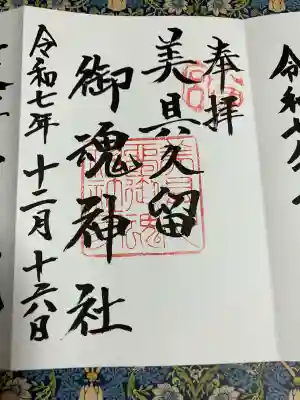 奉拝
美具久留
御魂神社
令和七年十二月十六日